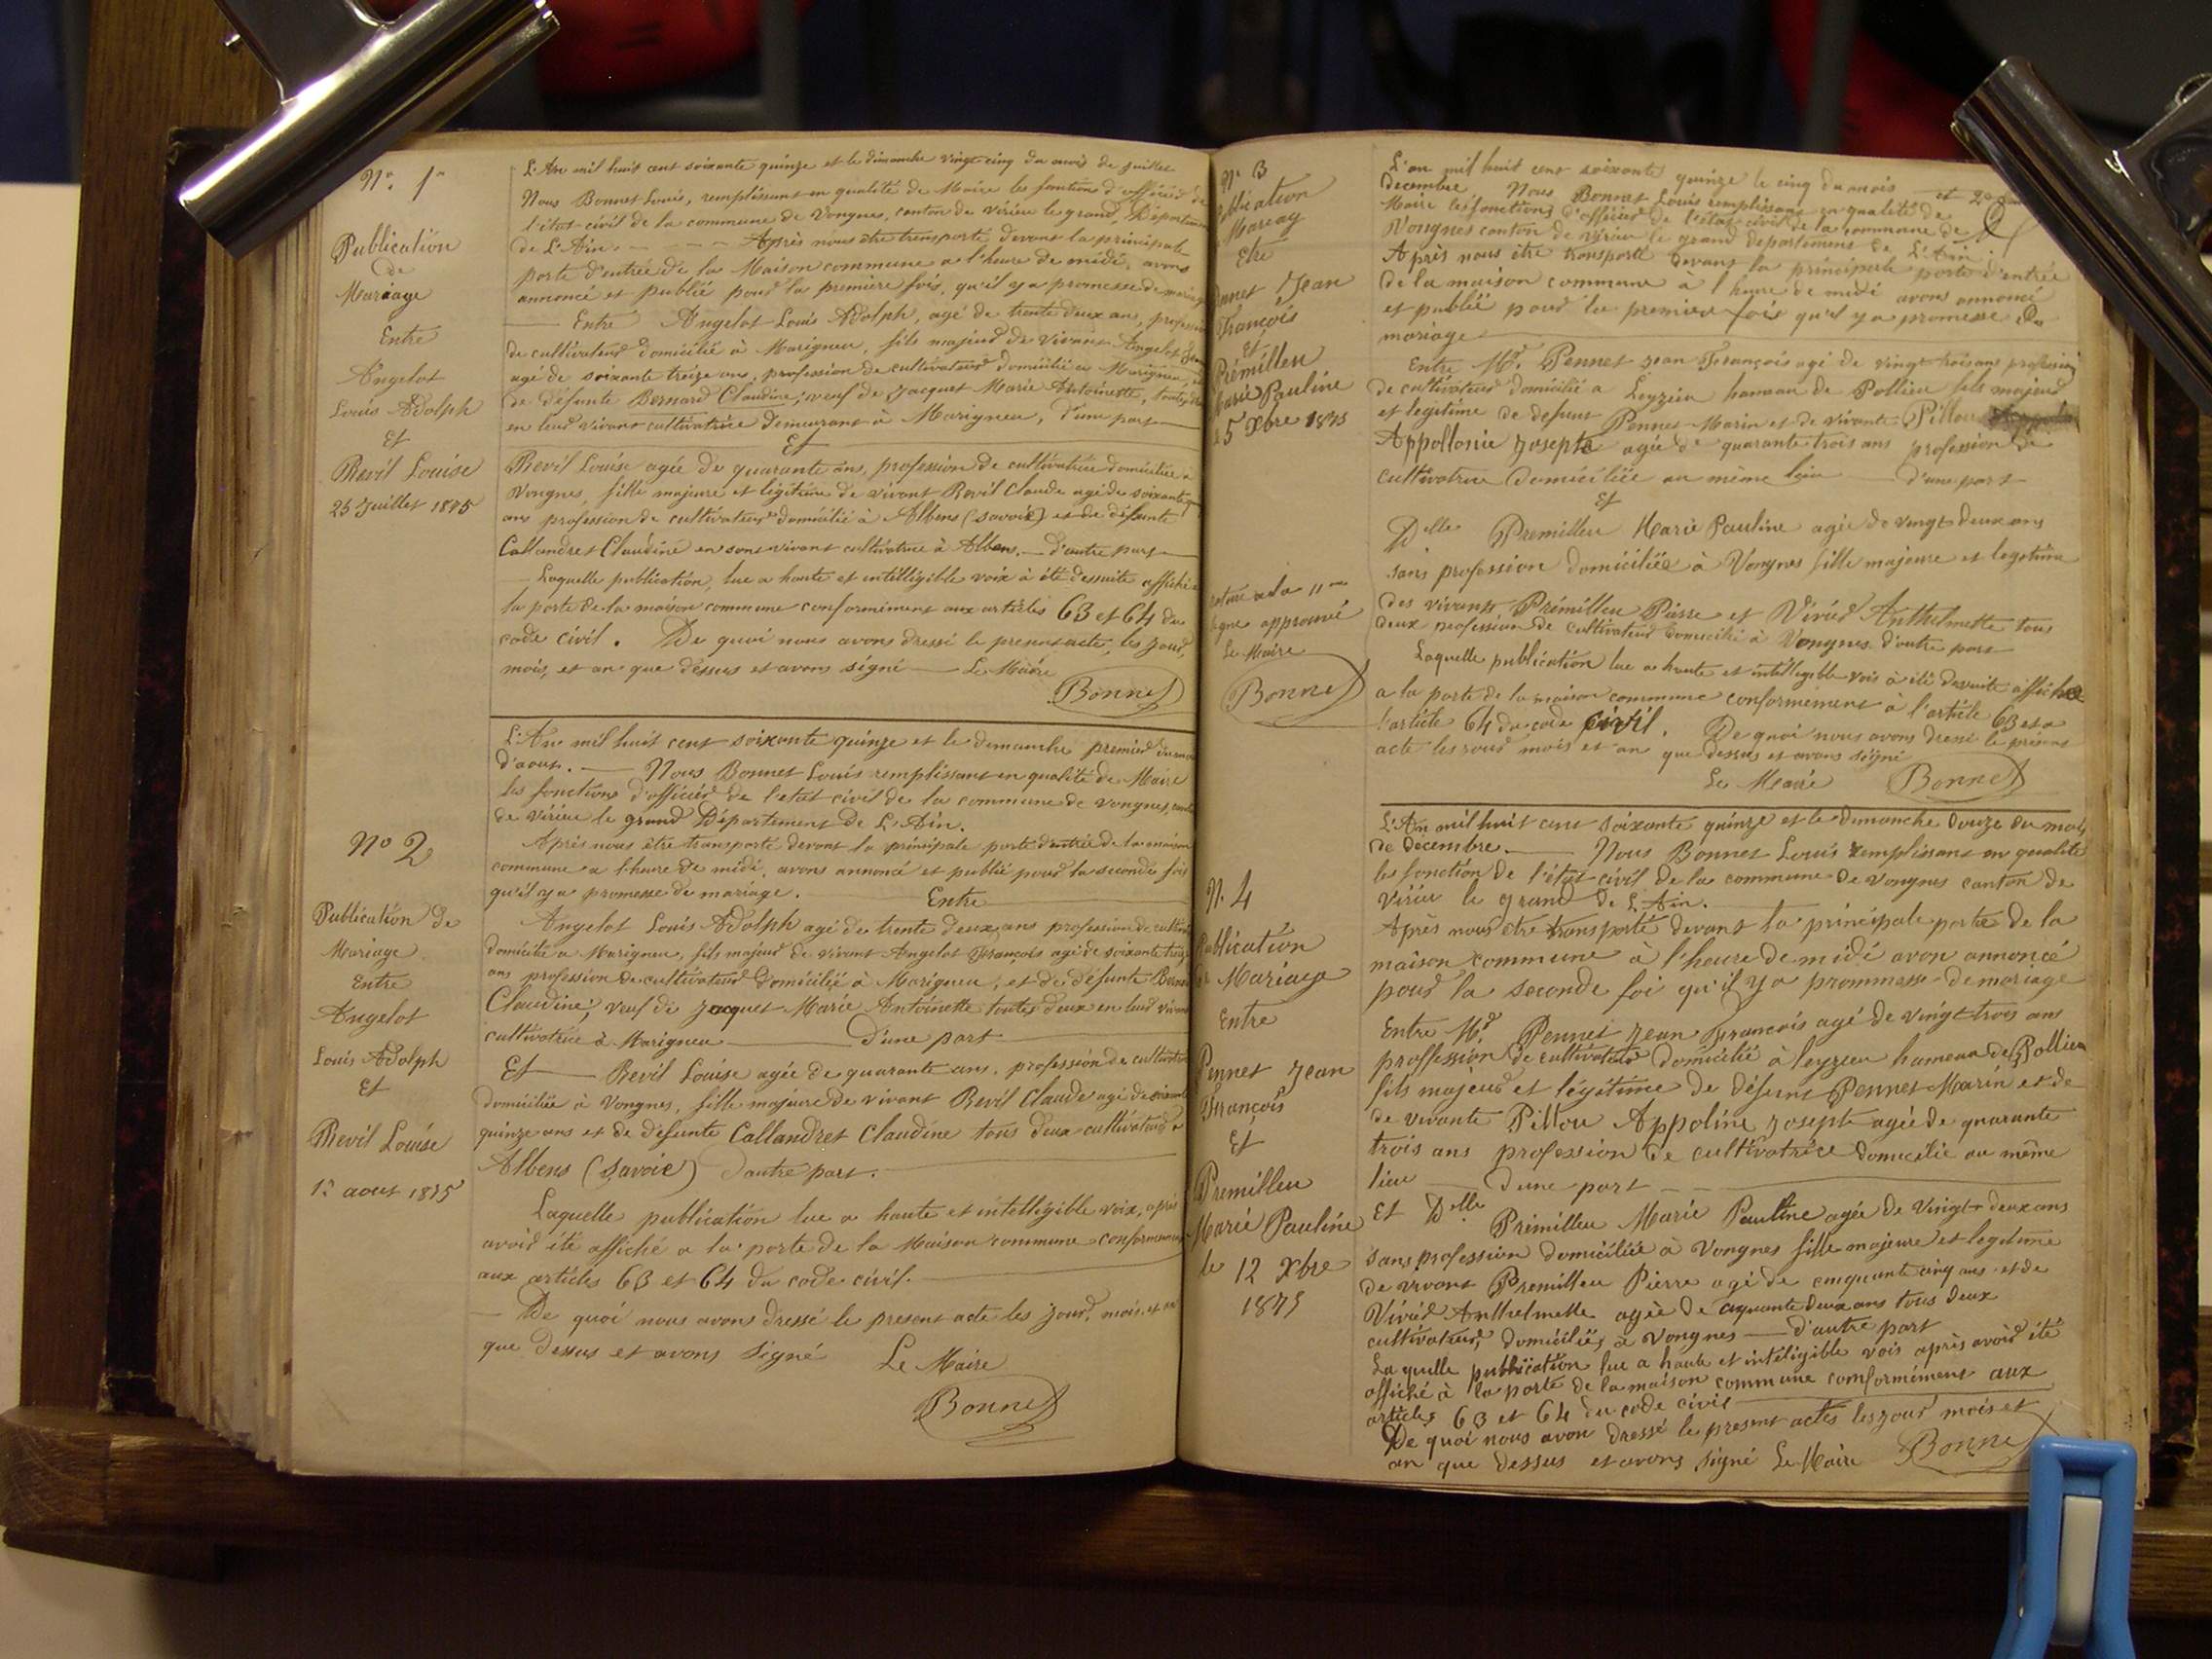 N° 1er
Publication
de
Mariage
Entre
Angelot
Louis Adolph
Et
Revil Louise
25 Juillet 1875
L'An mil huit cent soixante quinze et le dimanche vingt cinq du mois de Juillet
Nous Bonnet Louis, remplissant en qualité de Maire les fonctions d'officier de
l'état civil de la commune de Vongnes, canton de Virieu le grand, Département
de L'Ain. Après nous être transporté devant la principale
porte d'entrée de la Maison commune a l'heure de midi, avons
annoncé et publié pour la première fois, qu'il y a promesse de mariage
Entre Angelot Louis Adolph, agé de trente deux ans, profession
de cultivateur domicilié à Marigneu, fils majeur de vivant Angelot
agé de soixante treize ans, profession de cultivateur domicilié a Marigneu, et
de défunte Bernard Claudine, veuf de Jacquet Marie Antoinette, toutes
en leur vivant cultivatrice demeurant à Marigneu, d'une part
Et
Revil Louise agée de quarante ans, profession de cultivatrice domiciliée à
Vongnes, fille majeure et légitime de vivant Revil Claude agé de soixante
ans profession de cultivateur domicilié à Albens (Savoie) et de défunte
Callandret Claudine en sont vivant cultivatrice à Albens. d'autre part
Laquelle publication, lue a haute et intelligible voix à été dessuite affiché
la porte de la maison commune conformément aux articles 63 et 64 du
code civil. De quoi nous avons dressé le present acte, les jour,
mois, et an que dessus et avons signé Le Maire
Bonnet
N° 2
Publication de
Mariage
Entre
Angelot
Louis Adolph
Et
Revil Louise
1er aout 1875
L'An mil huit cent soixante quinze et le dimanche premier du mois
d'aout. Nous Bonnet Louis remplissant en qualité de Maire
les fonctions d'officier de l'etat civil de la commune de Vongnes,
de Virieu le grand Département de L'Ain.
Après nous être transporté devant la principale porte d'entrée de la maison
commune a l'heure de midi, avons annoncé et publié pour la seconde fois
qu'il y a promesse de mariage. Entre
Angelot Louis Adolph agé de trente deux ans profession de
domicilié a Marigneu, fils majeur de vivant Angelot François agé de soixante treize
ans profession de cultivateur domicilié à Marigneu, et de défunte
Claudine, veuf de Jacquet Marie Antoinette toutes deux en leur vivant
cultivatrice à Marigneu d'une part
Et Revil Louise agée de quarante ans, profession de cultivatrice
domiciliée à Vongnes, fille majeure de vivant Revil Claude agé de soixante
quinze ans et de défunte Callandret Claudine tous deux cultivateurs a
Albens (Savoie) d'autre part.
Laquelle publication lue a haute et intelligible voix, après
avoir été affiché a la porte de la Maison commune conformément
aux articles 63 et 64 du code civil.
De quoi nous avons dressé le present acte les jour, mois, et an
que dessus et avons signé Le Maire
Bonnet
N° 3
Mareag
Etre
Jean
François
Et
Prémilleu
Marie Pauline
5 Xbre 1875
rature a la 11me
ligne approuvé
Le Maire
Bonnet
L'an mil huit cent soixante quinze le cinq du mois
decembre Nous Bonnet Louis remplissant en qualité de
Maire les fonctions d'officier de l'état civil de la commune de
Vongnes canton de Virieu le grand departement de L'Ain.
Après nous être transporté devant la principale porte d'entrée
de la maison commune à l'heure de midi avons annoncé
et publié pour la premier fois qu'il y a promesse de
mariage
Entre Mr. Pennet Jean François agé de vingt trois ans profession
de cultivateur domicilié a Leyzieu hameau de Pollieu fils majeur
et legitime de defunt Pennet Marin et de vivante Pillou
Appollonie Josepte agée de quarante trois ans profession de
cultivatrice domiciliée au même lieu d'une part
Et
Delle Premilleu Marie Pauline agée de vingt deux ans
sans profession domiciliée à Vongnes fille majeure et legitime
des vivants Prémilleu Pierre et Virier Anthelmette tous
deux profession de cultivateur domicilié à Vongnes d'autre part
Laquelle publication lue a haute et intelligible vois à été desuite affiché
a la porte de la maison commune conformément à l'article 63 et a
l'article 64 du code civil. De quoi nous avons dressé le présent
acte les jour mois et an que dessus et avons signé
Le Maire Bonnet
N. 4
Publication
de Mariage
Entre
Pennet Jean
François
Et
Premilleu
Marie Pauline
le 12 Xbre
1875
L'An mil huit cent soixante quinze et le dimanche douze du mois
de décembre. Nous Bonnet Louis remplissant en qualité
les fonction de l'état civil de la commune de Vongnes canton de
Virieu le grand de L'Ain.
Après nous être transporté devant la principale porte de la
maison commune à l'heure de midi avon annoncé
pour la seconde foi qu'il y a prommesse de mariage
Entre Mr. Pennet Jean François agé de vingt trois ans
proffession de cultivateur domicilié à leyzieu hameau de Pollieu
fils majeur et légitime de défunt Pennet Marin et de
de vivante Pillou Appoline Josepte agée de quarante
trois ans profession de cultivatrice domicilié au même
lieu d'une part
Et Delle Primilleu Marie Pauline agée de vingt deux ans
sans profession domiciliée à Vongnes fille majeure et legitime
de vivant Premilleu Pierre agé de cinquante cinq ans et de
Virier Anthelmette agée de cinquante deux ans tous deux
cultivateur, domiciliés à Vongnes d'autre part
La quelle publication lue a haute et inteligible vois après avoir été
affiché à la porte de la maison commune comformément aux
articles 63 et 64 du code civil
De quoi nous avon dressé le present actes les jour mois et
an que dessus et avons signé Le Maire Bonnet